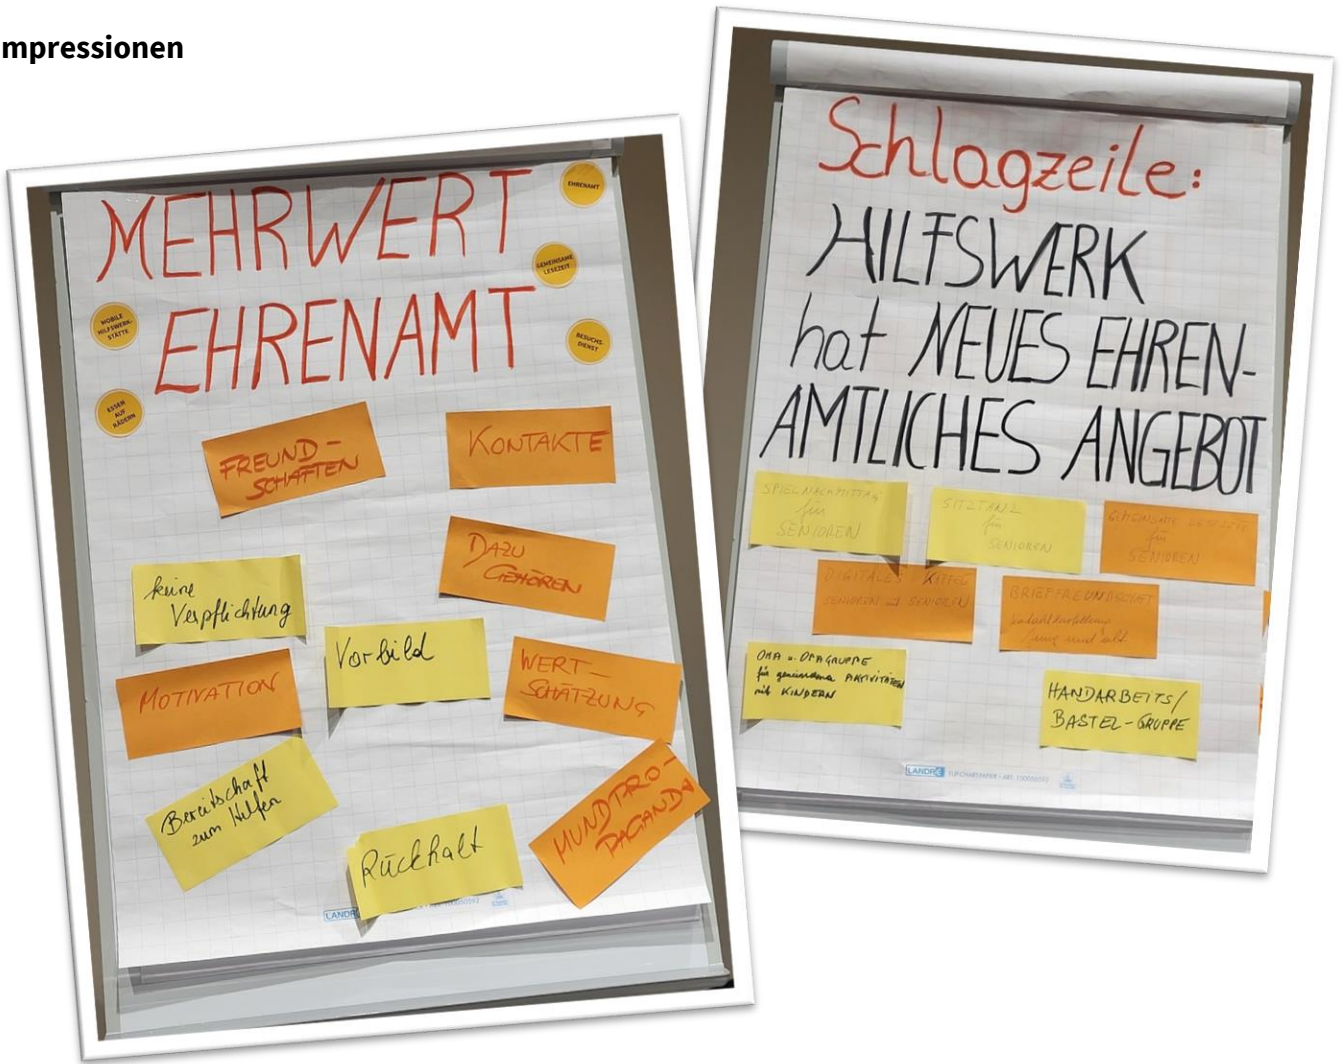 mpressionen
MEHRWERT
EHRENAMT
EHRENAMT
GEMEINSAME
LESEZEIT
MOBILE
HILFSWERK-
STÄTTE
BESUCHS-
DIENST
ESSEN
AUF
RÄDERN
FREUND-
SCHAFTEN
KONTAKTE
DAZU
GEHÖREN
keine
Verpflichtung
Vorbild
MOTIVATION
WERT-
SCHÄTZUNG
Bereitschaft
zum Helfen
Rückhalt
MUNDPRO-
PAGANDA
LANDRÉ
Schlagzeile:
HILFSWERK
hat NEUES EHREN-
AMTLICHES ANGEBOT
SPIELNACHMITTAG
für
SENIOREN
SITZTANZ
für
SENIOREN
GEMEINSAME LESEZEIT
für
SENIOREN
DIGITALES KAFFEE
SENIOREN SENIOREN
BRIEFFREUNDSCHAFT
jung und alt
OMA u. OPAGRUPPE
für gemeinsame AKTIVITÄTEN
mit KINDERN
HANDARBEITS/
BASTEL-GRUPPE
LANDRÉ FLIPCHARTPAPIER - ART. 100050592